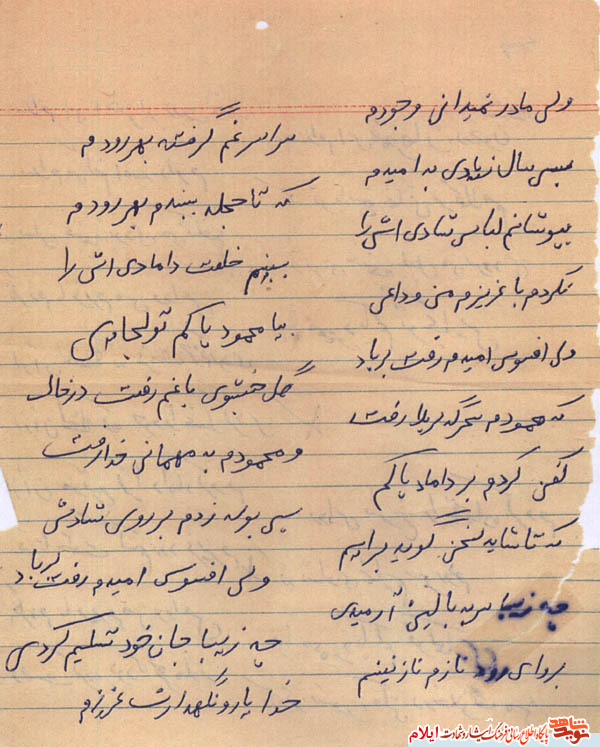 ولی مادر نمیدانی وجودم
سراسر غم گرفته بهر رودم
بسی سال زیادی به امیدم
که تا حجله ببندم بهر رودم
بپوشانم لباس شادی اش را
ببینم خلعت دامادی اش را
نکردم با عزیزم من وداعی
بیا محمود پاکم تو کجایی
ولی افسوس امیدم رفت برباد
گل خشبوی باغم رفت در خاک
که محمودم سحرگه کربلا رفت
و محمودم به مهمانی خدا رفت
کفن کردم بر داماد پاکم
بسی بوسه زدم بر روی شادش
که تا شاید سخن گوید برایم
ولی افسوس امیدم رفت برباد
چه زیبا سر به بالین آرمیدی
چه زیبا جان خود تسلیم کردی
بروای رود نازم نازنینم
خدا یار و نگهدارت عزیزم
نوید شاهد پایگاه اطلاع رسانی فرهنگ ایثار و شهادت ایلام